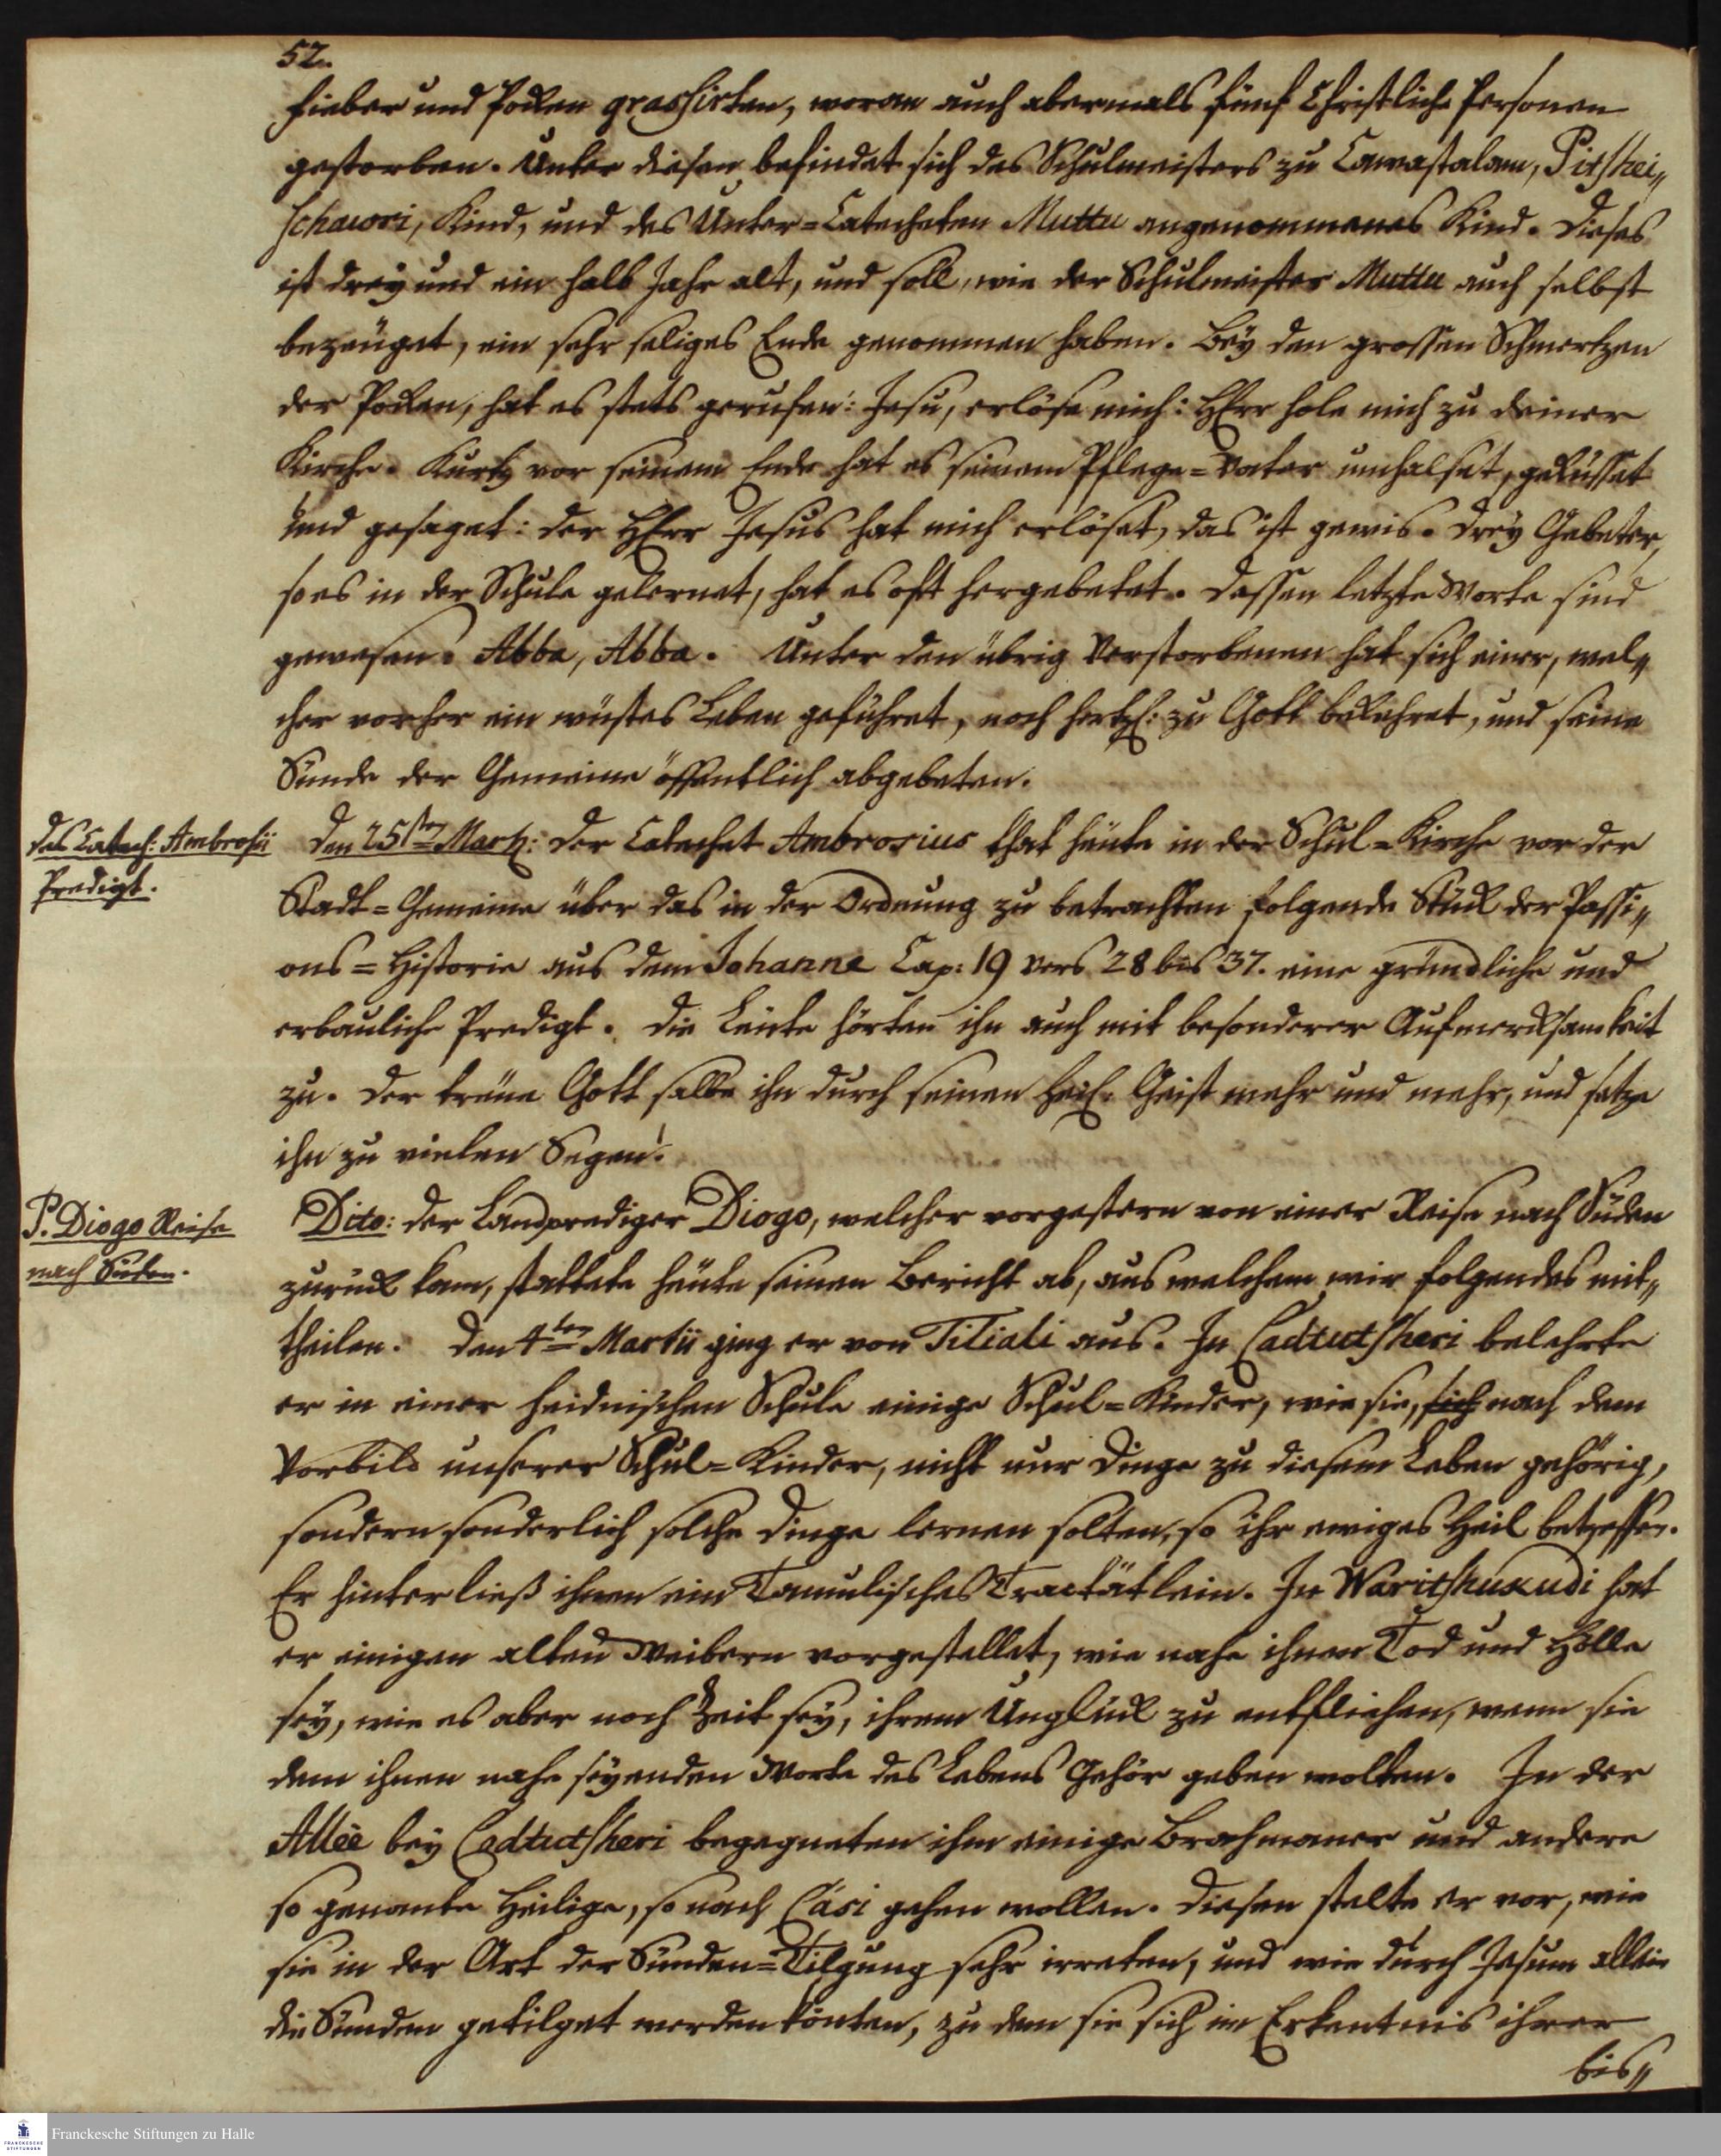 52.
Fieber und Pocken grassirten, woran auch abermals fünf Christliche Personen
gestorben. Unter diesen befindet sich des Schulmeisters zu Cawastalam, Pitshei„
schawri, Kind, und des Unter=Catecheten Muttu angenommenes Kind. Dieses
ist drey und ein halb Jahr alt, und soll, wie der Schulmeister Muttu auch selbst
bezeüget, ein sehr seliges Ende genommen haben. Bey den grossen Schmertzen
der Pocken, hat es stets gerufen: Jesu, erlöse mich: HErr hole mich zu deiner
Kirche. Kurtz vor seinem Ende hat es seinem Pflege=Vater umhalset, geküsset
und gesaget: der HErr Jesus hat mich erlöset, das ist gewis. Drey Gebeter,
so es in der Schule gelernet, hat es oft hergebetet. Dessen letzte Worte sind
gewesen: Abba, Abba. Unter den übrig Verstorbenen hat sich einer, wel„
cher vorher ein wüstes Leben geführet, noch hertzl: zu Gott bekehret, und seine
Sünde der Gemeine öffentlich abgebeten.
des Catech: Ambrosii
Predigt.
Den 25sten Martz: Der Catechet Ambrosius that heüte in der Schul=Kirche vor der
Stadt=Gemeine über das in der Ordnung zu betrachten folgende Stück der Passi„
ons=Historie aus dem Johanne Cap: 19 vers 28 bis 37. eine gründliche und
erbauliche Predigt. Die Leüte hörten ihn auch mit besonderer Aufmercksamkeit
zu. Der treüe Gott salbe ihn durch seinen Heil. Geist mehr und mehr, und setze
ihn zu vielen Segen!
P. Diogo Reise
nach Süden.
Dito: Der Landprediger Diogo, welcher vorgestern von einer Reise nach Süden
zurück kam, stattete heüte seinen Bericht ab, aus welchem wir folgendes mit„
theilen. Den 4ten Martii ging er von Tiliali aus. In Cadtutsheri belehrte
er in einer heidnischen Schule einige Schul=Kinder, wie sie, sich nach dem
Vorbild unserer Schul=Kinder, nicht nur Dinge zu diesem Leben gehörig,
sondern sonderlich solche Dinge lernen solten, so ihr ewiges Heil betreffen.
Er hinterließ ihnen ein Tamulisches Tractätlein. In Waritshukudi hat
er einigen alten Weibern vorgestellet, wie nahe ihnen Tod und Hölle
sey, wie es aber noch Zeit sey, ihrem Unglück zu entfliehen, wenn sie
dem ihnen nahe seyenden Worte des Lebens Gehör geben wolten. In der
Allée bey Cadtutsheri begegneten ihm einige Brahmaner und andere
so genante Heilige, so nach Cási gehen wollen. Diesen stelte er vor, wie
sie in der Art der Sünden=Tilgung sehr irreten, und wie durch Jesum allein
die Sünden getilget werden könten, zu dem sie sich in Erkentnis ihrer
bis„
Franckesche Stiftungen zu Halle